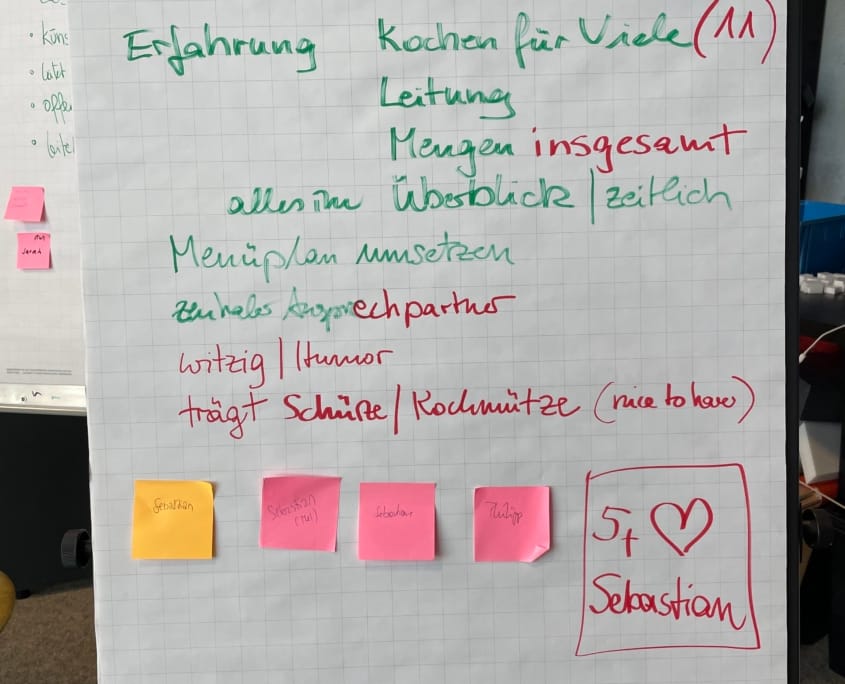 • Küns
• latr
• offe
Erfahrung Kochen für Viele (11)
Leitung
Mengen insgesamt
alles im Überblick / zeitlich
Menüplan umsetzen
zentraler Ansprechpartner
witzig / Humor
trägt Schürze / Kochmütze (nice to have)
Sarah
Sebastian
Sebastian
Sebastian
Philipp
5+ ♡
Sebastian